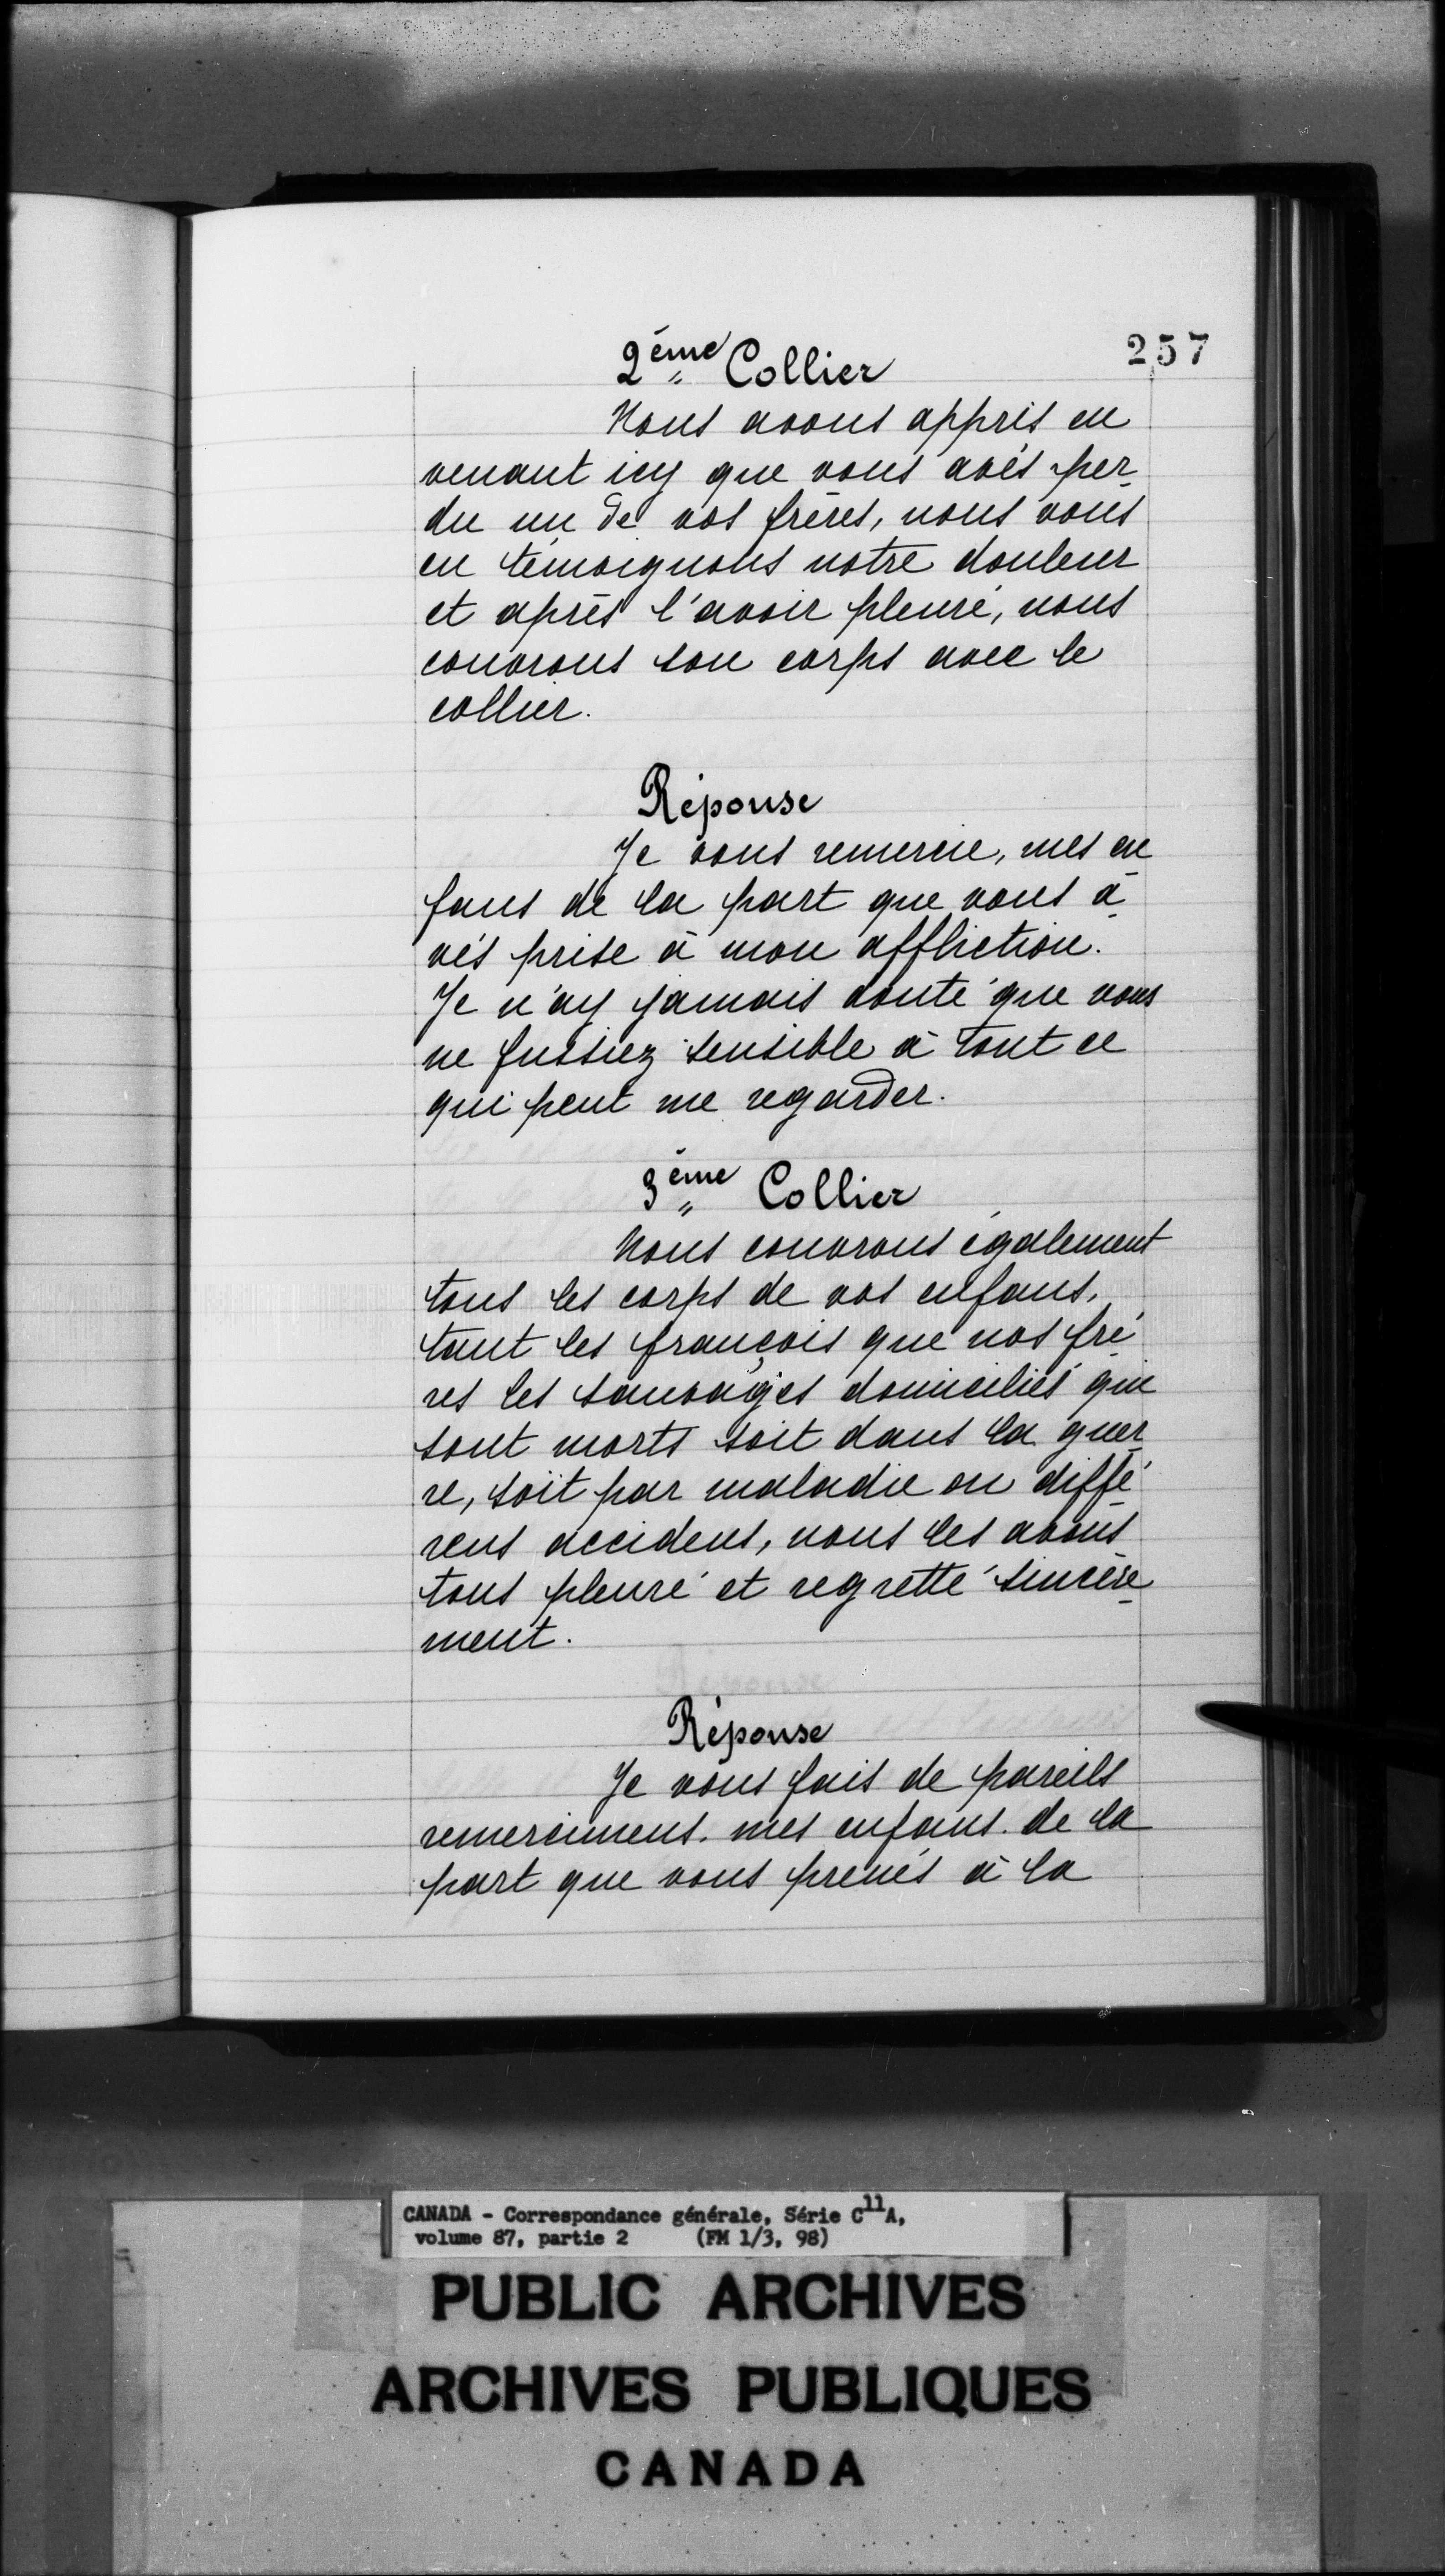 257
2ème Collier
Nous avons appris en
venant icy que vous avés per-
du un de vos frères, nous vous
en témoignons notre douleur
et après l'avoir pleuré, nous
couvrons son corps avec le
collier.
Réponse
Je vous remercie, mes en-
fans de la part que vous a-
vés prise à mon affliction.
Je n'ay jamais douté que vous
ne fussiez sensible à tout ce
qui peut me regarder.
3ème Collier
Nous couvrons également
tous les corps de vos enfans,
tant les françois que nos frè-
res les sauvages domiciliés qui
sont morts soit dans la guer-
re, soit par maladie ou diffé-
rens accidens, nous les avons
tous pleuré et regretté sincère-
ment.
Réponse
Je vous fais de pareils
remercimens. mes enfans. de la
part que vous prenés à la
CANADA - Correspondance générale, Série C11A,
volume 87, partie 2 (FM 1/3, 98)
PUBLIC ARCHIVES
ARCHIVES PUBLIQUES
CANADA